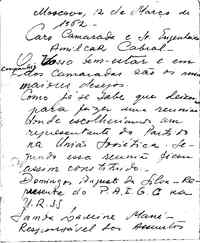 Moscovo, 12 de Março de
1962.
Caro Camarada e Sr. Engenheiro
Amilcar Cabral-
O Vosso bem-estar e em
companhia dos camaradas são os meus
maiores desejos.
Como já se sabe que deixou
para fazer uma reunião
donde escolheriamos um
representante do Partido
na União Soviética. Se-
gundo essa reunião ficou
assim constituido.
Domingos August da Silva - Re-
presente do P.A.I.G.C na
U.R.SS
Lamba Lassene Mané-
Responsável dos Assuntos